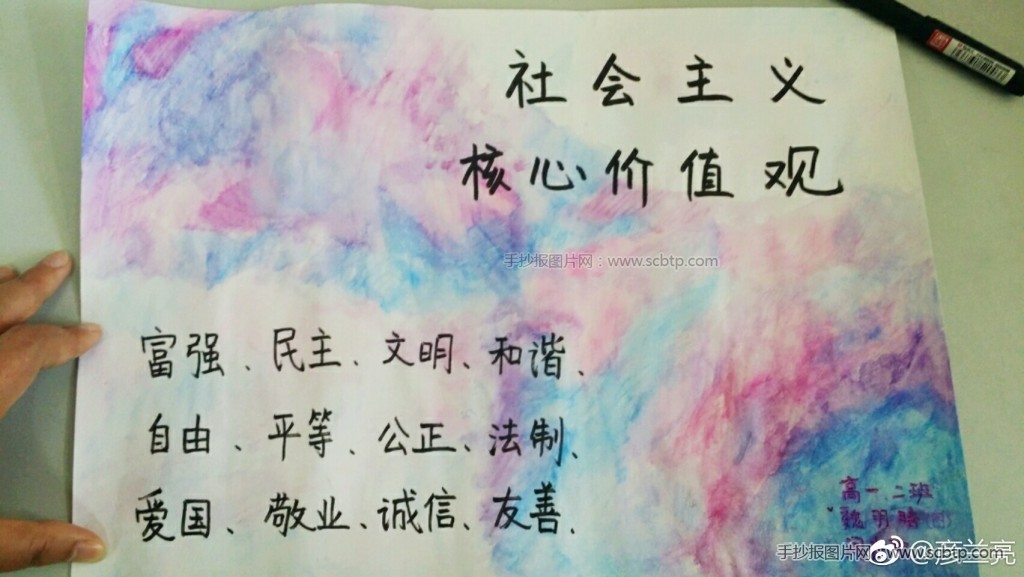 社会主义
核心价值观
手抄报图片网：www.scbtp.com
富强、民主、文明、和谐、
自由、平等、公正、法制、
爱国、敬业、诚信、友善、
高一.二班
手抄报图片网：www.scbtp.com
@彦兰亮